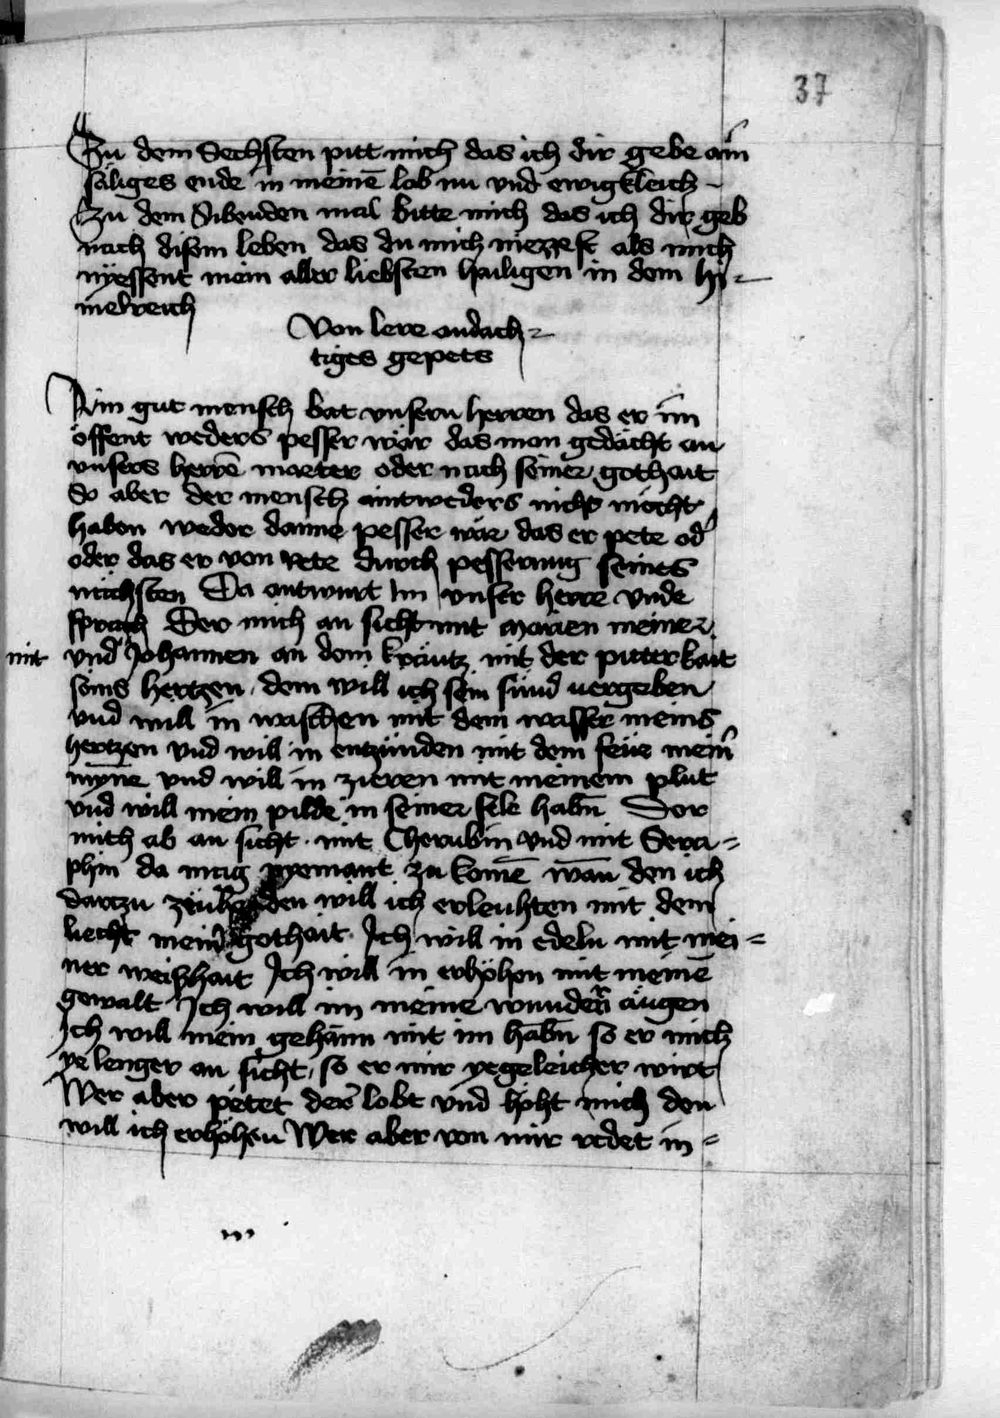 37
Zu dem Sechsten pitt mich das ich dir gebe aim̄
säliges ende in meinē lob nu vnd ewigkleich
Zu dem Sibenden mal bitte mich das ich dir geb
nach disem leben das du mich niezzest als mich
nyessent mein aller liebsten hailigen in dem hi-
melreich
Von lere andach-
tiges gepets
Ain gut mensch bat vnsern herren das er im
öffent weders pesser wär das man gedächt an
vnsers herrē marter oder nach seiner gothait
So aber der mensch aintweders nicht möcht
haben weder danne pesser wär das er pete od
oder das er von rete durch pesserung seines
nächsten Da antwurt Im vnser herre vnde
sprach Der mich an sicht mit Marien meiner
mit vnd Johannen an dem kräutz mit der pitterkait
seins hertzen dem will ich sein sünd vergeben
vnd will in waschen mit dem wasser meins
hertzen vnd will in entzünden mit dem feüe mein̄
mynne vnd will in zieren mit meinem plut
vnd will mein pilde in seiner sele habn̄ Der
mich ab an sicht mit Cherubin vnd mit Sera-
phin da mag nyemant zu komē wan̄ den ich
dartzu den will ich erleuhten mit dem
liecht mein̄ gothait Ich will in edeln mit mei-
ner weishait Ich will in erhöhen mit meinē
gewalt Ich will im meine wunder äugen
Ich will mein gehäim mit im habn̄ so er mich
ye lenger an sicht so er mir yegeleicher wirt
Wer aber petet der lobt vnd höht mich den
will ich erhöhen Wer aber von mir redet in-